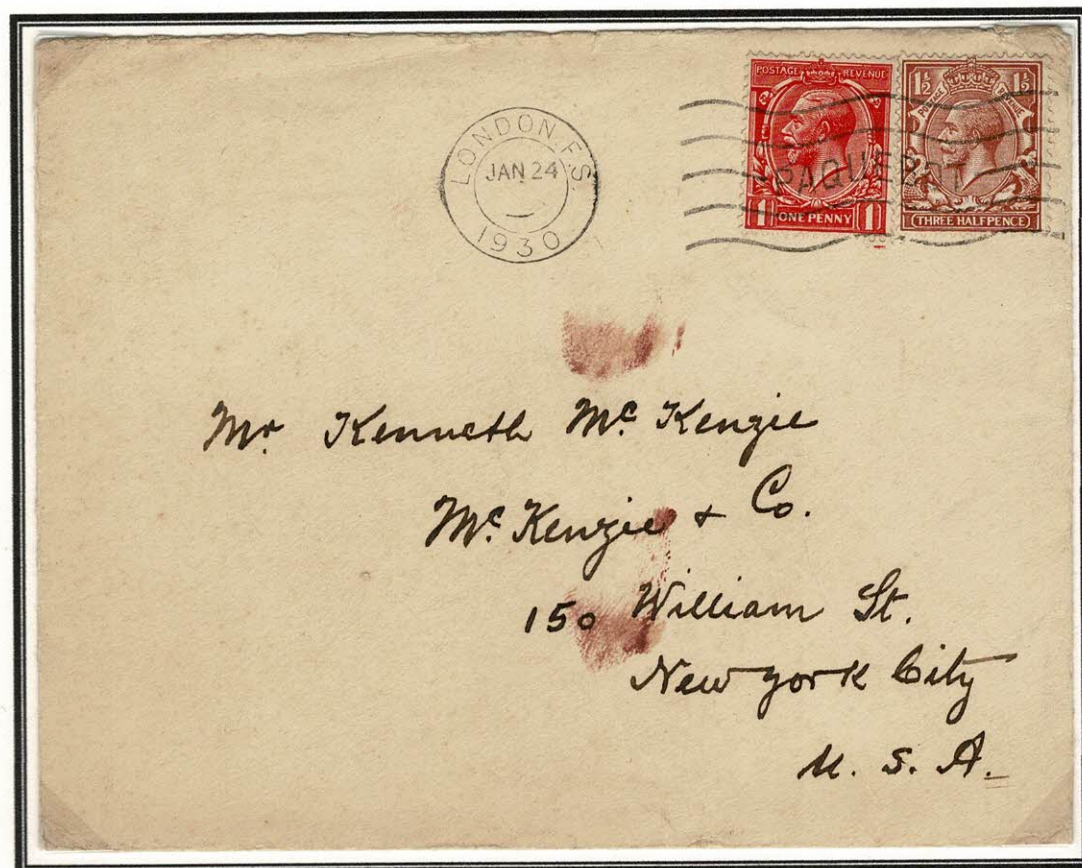 LONDON. F.S.
JAN 24
1930
POSTAGE REVENUE
1 ONE PENNY 1
1½ 1½
POSTAGE REVENUE
THREE HALFPENCE
PAQUEBOT
Mr Kenneth Mc Kenzie
Mc Kenzie + Co.
150 William St.
New York City
U. S. A.